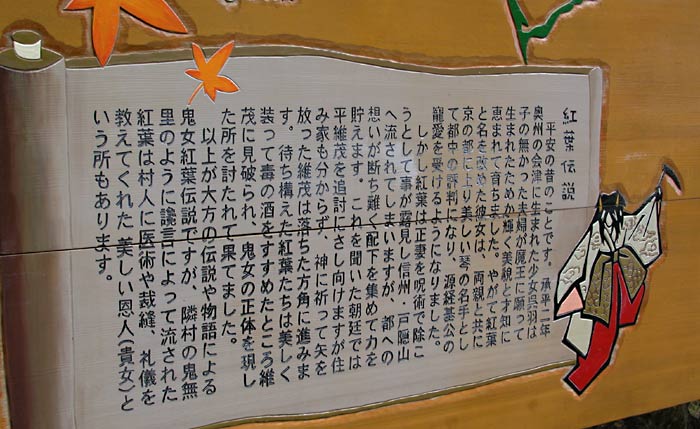 紅葉伝説
平安の昔のことです。承平二年
奥州の会津に生まれた少女呉羽は
子の無かった夫婦が魔王に願って
生まれたためか輝く美貌と才知に
恵まれて育ちました。やがて紅葉
と名を改めた彼女は、両親と共に
京の都に上り美しい琴の名手とし
て都中の評判になり、源経基公の
寵愛を受けるようになりました。
しかし紅葉は正妻を呪術で除こ
うとして事が露見し信州・戸隠山
へ流されてしまいますが、都への
想いが断ち難く配下を集めて力を
貯えます。これを聞いた朝廷では
平維茂を追討にさし向けますが住
み家も分からず、神に祈って矢を
放った維茂は落ちた方角に進みま
す。待ち構えた紅葉たちは美しく
装って毒の酒をすすめたところ維
茂に見破られ、鬼女の正体を現し
た所を討たれて果てました。
以上が大方の伝説や物語による
鬼女紅葉伝説ですが、隣村の鬼無
里のように讒言によって流された
紅葉は村人に医術や裁縫、礼儀を
教えてくれた 美しい恩人(貴女)と
いう所もあります。